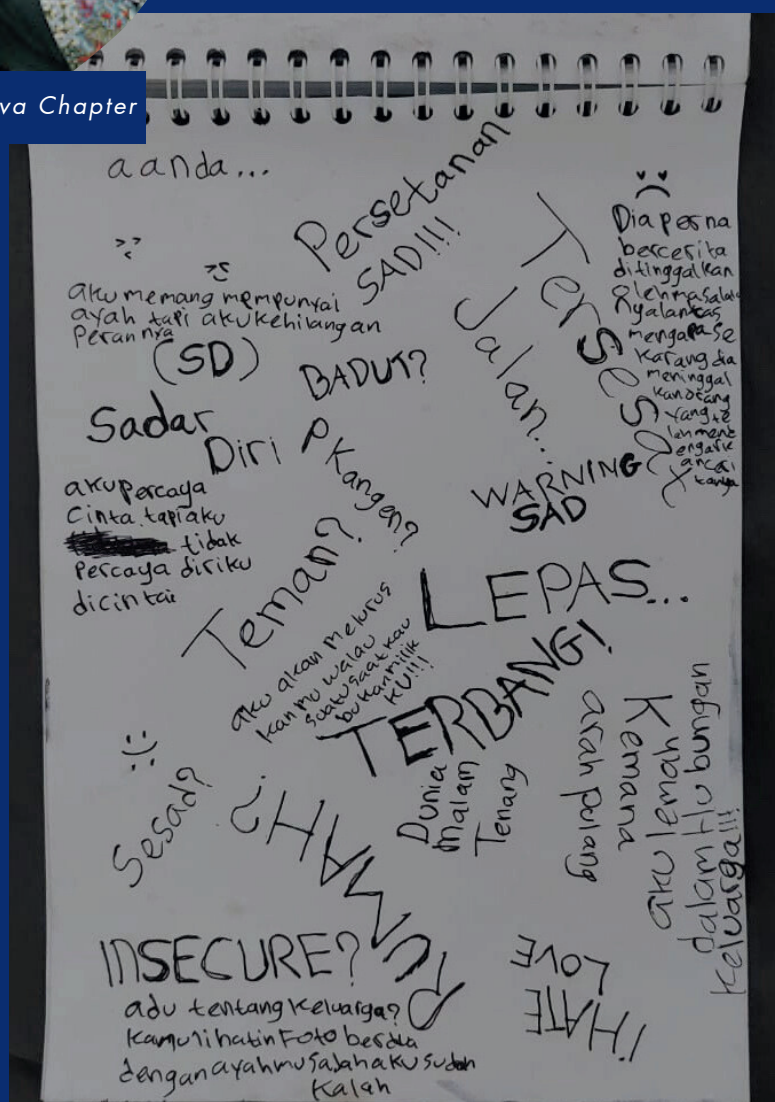 va Chapter
aanda...
Persetanan
SAD!!!
Tersesat
Jalan...
Dia perna
bercerita
ditinggalkan
oleh masalalu
nya lantas
mengapa se
karang dia
meninggal
kan orang
yang te
lah mend
engark
an ceri
tanya
aku memang mempunyai
ayah tapi aku kehilangan
perannya
(SD)
BADUT?
Sadar
Diri
P
Kangen?
WARNING
SAD
aku percaya
Cinta. tapi aku
tidak
Percaya diriku
dicintai
Teman?
LEPAS...
aku akan melurus
kan mu walau
suatu saat kau
bukan milik
KU!!!
TERBANG!
Sesad?
RUMAH?
Dunia
Malam
Tenang
Kemana
arah pulang
aku lemah
dalam Hu bungan
keluarga!!!
INSECURE?
adu tentang keluarga?
kamu lihatin Foto berdua
dengan ayahmu saja aku sudah
kalah
I HATE
LOVE